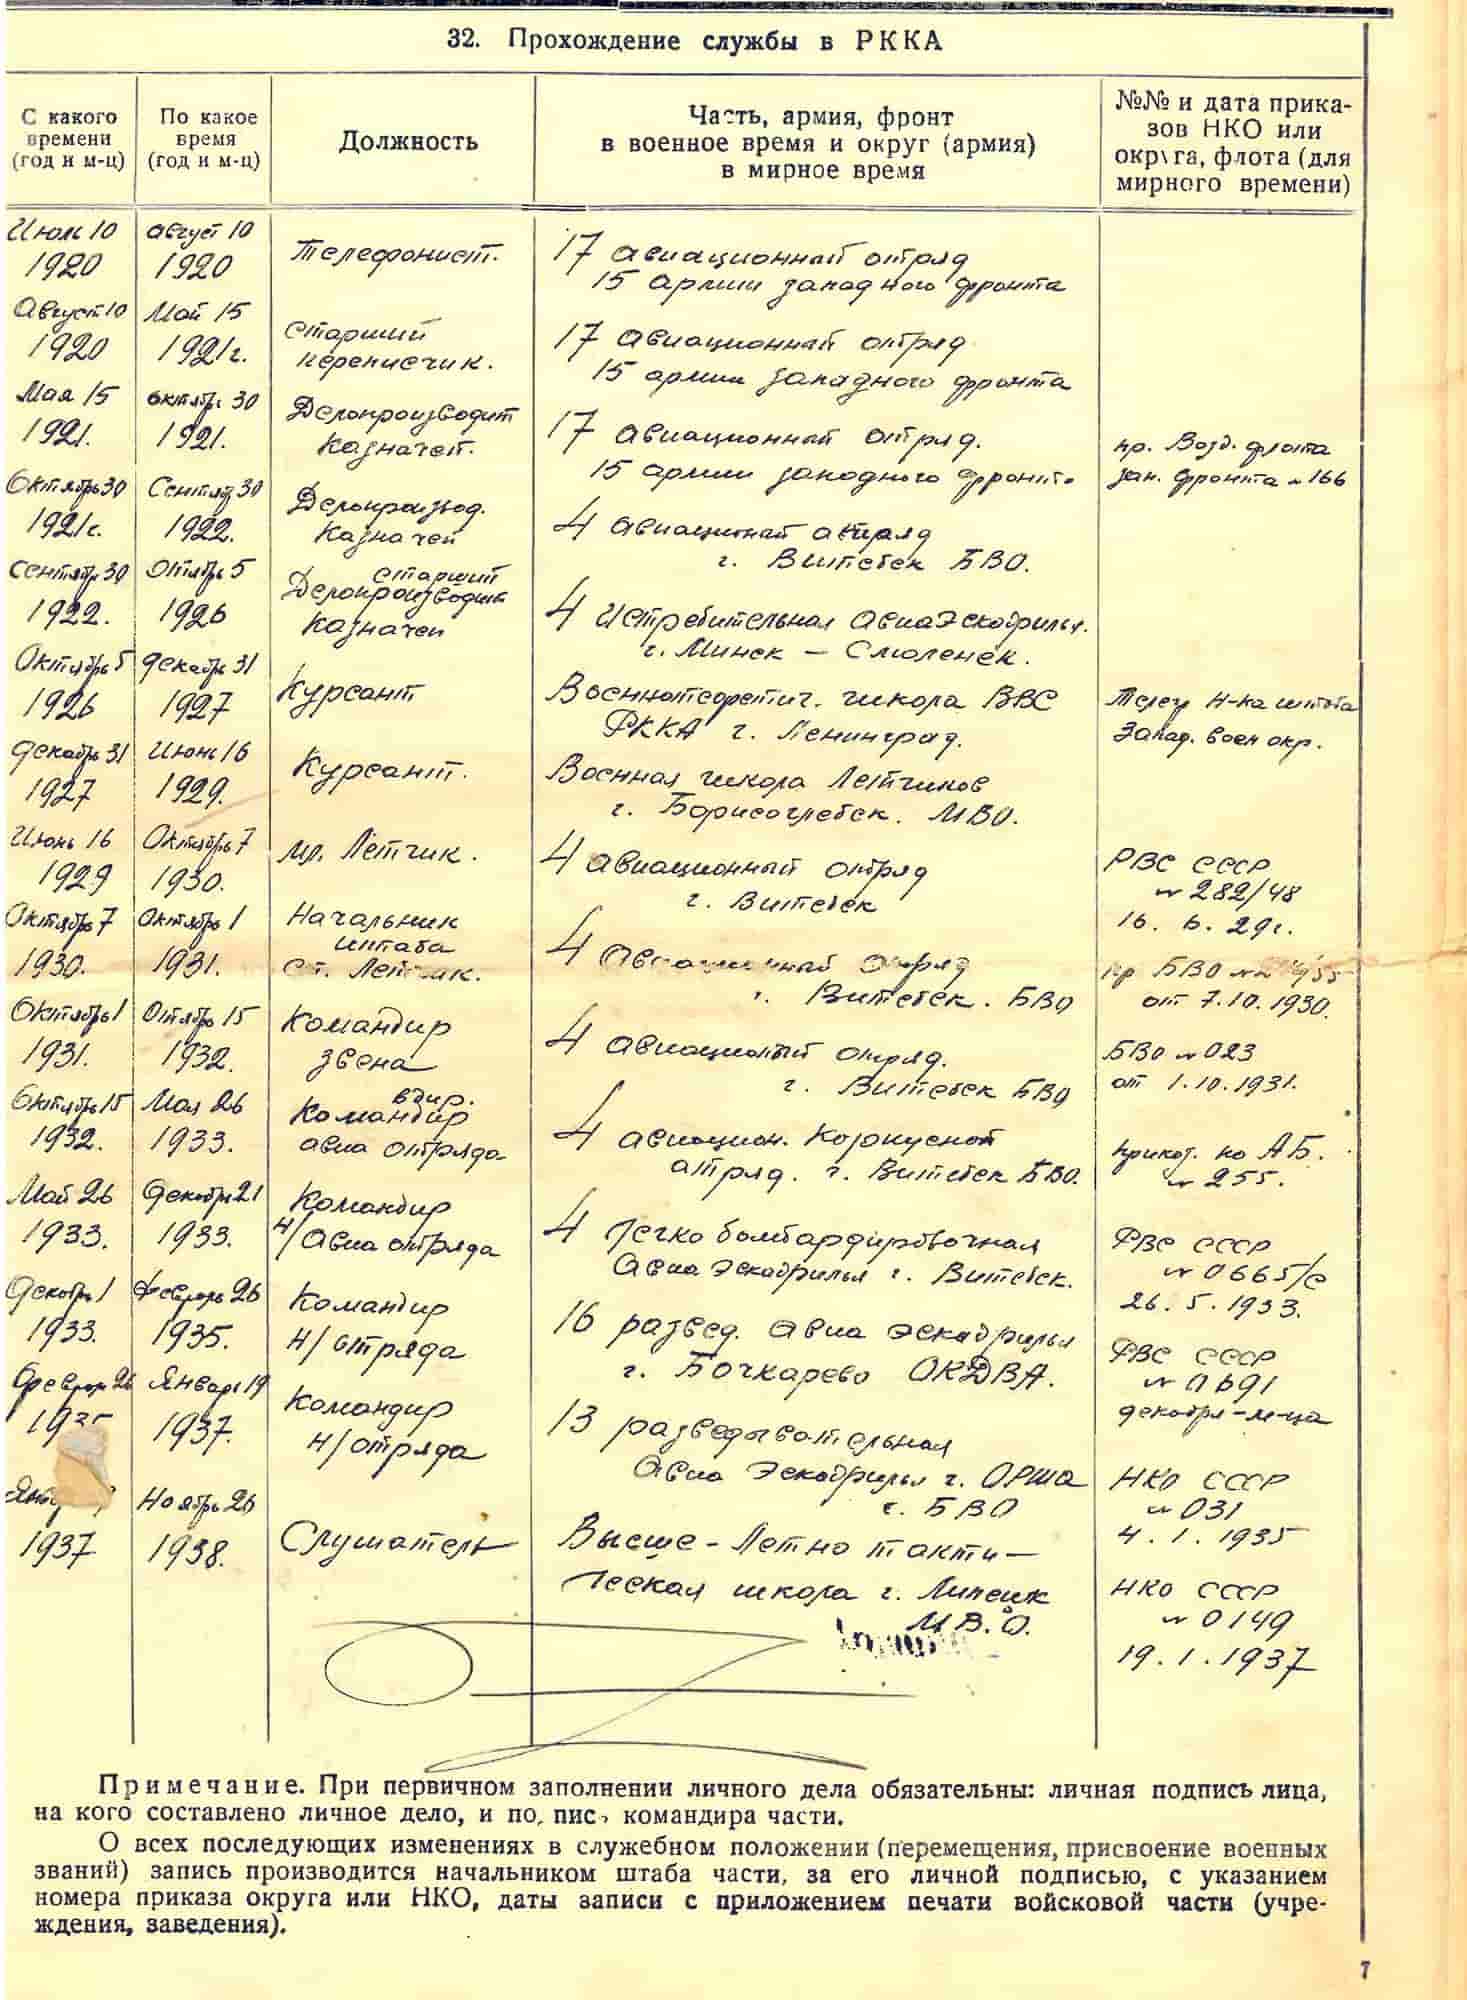 32. Прохождение службы в РККА
С какого времени (год и м-ц)
По какое время (год и м-ц)
Должность
Часть, армия, фронт
в военное время и округ (армия)
в мирное время
№№ и дата прика-
зов НКО или
округа, флота (для
мирного времени)
Июль 10 август 10
1920 1920 Телефонист. 17 авиационный отряд
15 армии западного фронта
Август 10 Май 15
1920 1921г. Старший переписчик. 17 авиационный отряд
15 армии западного фронта
Мая 15 октябрь 30
1921. 1921. Делопроизводит Казначей. 17 авиационный отряд.
15 армии западного фронт.
пр. Возд. флота
зап. фронта №166
Октябрь 30 Сентяб 30
1921г. 1922. Делопроизвод. Казначей 4 авиационный отряд
г. Витебск БВО.
сентябрь 30 Октябрь 5
1922. 1926 старший Делопроизводит Казначей 4 истребительная авиаэскадрилья.
г. Минск — Смоленск.
Октябрь 5 декабрь 31
1926 1927 Курсант Военнотеоретич. школа ВВС
РККА г. Ленинград.
Телегр Н-ка штаба
Запад. воен окр.
декабрь 31 Июнь 16
1927 1929. Курсант. Военная школа Летчиков
г. Борисоглебск. МВО.
Июнь 16 Октябрь 7
1929 1930. мл. Летчик. 4 авиационный отряд
г. Витебск
РВС СССР
№ 282/48
16. 6. 29г.
Октябрь 7 Октябрь 1
1930. 1931. Начальник штаба
ст. Летчик. 4 авиационный отряд
г. Витебск. БВО
пр БВО №
от 7.10.1930.
Октябрь 1 Октябрь 15
1931. 1932. Командир звена 4 авиационный отряд.
г. Витебск БВО
БВО № 023
от 1.10.1931.
Октябрь 15 Мая 26
1932. 1933. Командир
авиа отряда 4 авиацион. Корпусной
отряд. г. Витебск БВО.
приказ. по АБ.
№ 255.
Май 26 Декабря 21
1933. 1933. Командир
Н/авиа отряда 4 легко бомбардировочная
Авиа эскадрилья г. Витебск.
РВС СССР
№ 0665/с
26. 5. 1933.
Декабрь 1 Февраль 26
1933. 1935. Командир
Н/отряда 16 развед. авиа эскадрилья
г. Бочкарево ОКДВА.
РВС СССР
№ 0691
декабря-м-ца
Февраль 26 Январь 19
1935 1937. Командир
Н/отряда 13 разведывательная
Авиа эскадрилья г. Орша
г. БВО
НКО СССР
№ 031
4. 1. 1935
Ноябрь 26
1937 1938. Слушатель Высше-Летно такти—
ческая школа г. Липецк
М.В.О.
НКО СССР
№ 0149
19. 1. 1937
Примечание. При первичном заполнении личного дела обязательны: личная подпись лица,
на кого составлено личное дело, и подпись командира части.
О всех последующих изменениях в служебном положении (перемещения, присвоение военных
званий) запись производится начальником штаба части, за его личной подписью, с указанием
номера приказа округа или НКО, даты записи с приложением печати войсковой части (учре-
ждения, заведения).
7